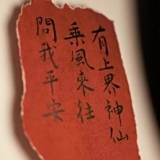 有上界神仙
乘風來往
問我平安